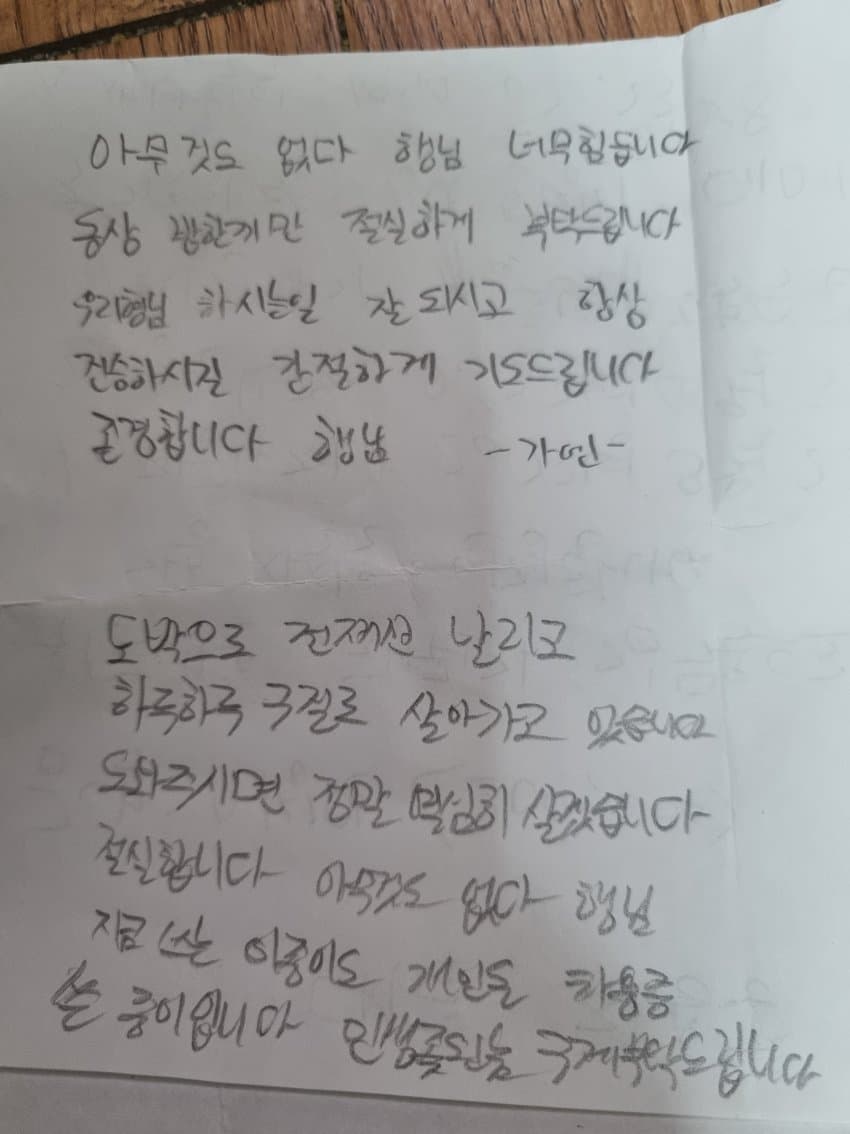 아무것도 없다 행님 너무힘듭니다
동상 한께만 절실하게 부탁드립니다
우리형님 하시는일 잘 되시고 항상
전승하시길 간절하게 기도드립니다
존경합니다 행님 -가연-
도박으로 전재산 날리고
하루하루 구질로 살아가고 있습니다
도와주시면 정말 열심히 살겠습니다
절실합니다 아무것도 없다 행님
지금 쓰는 이종이도 개인돈 차용증
쓴 종이입니다 구제부탁드립니다